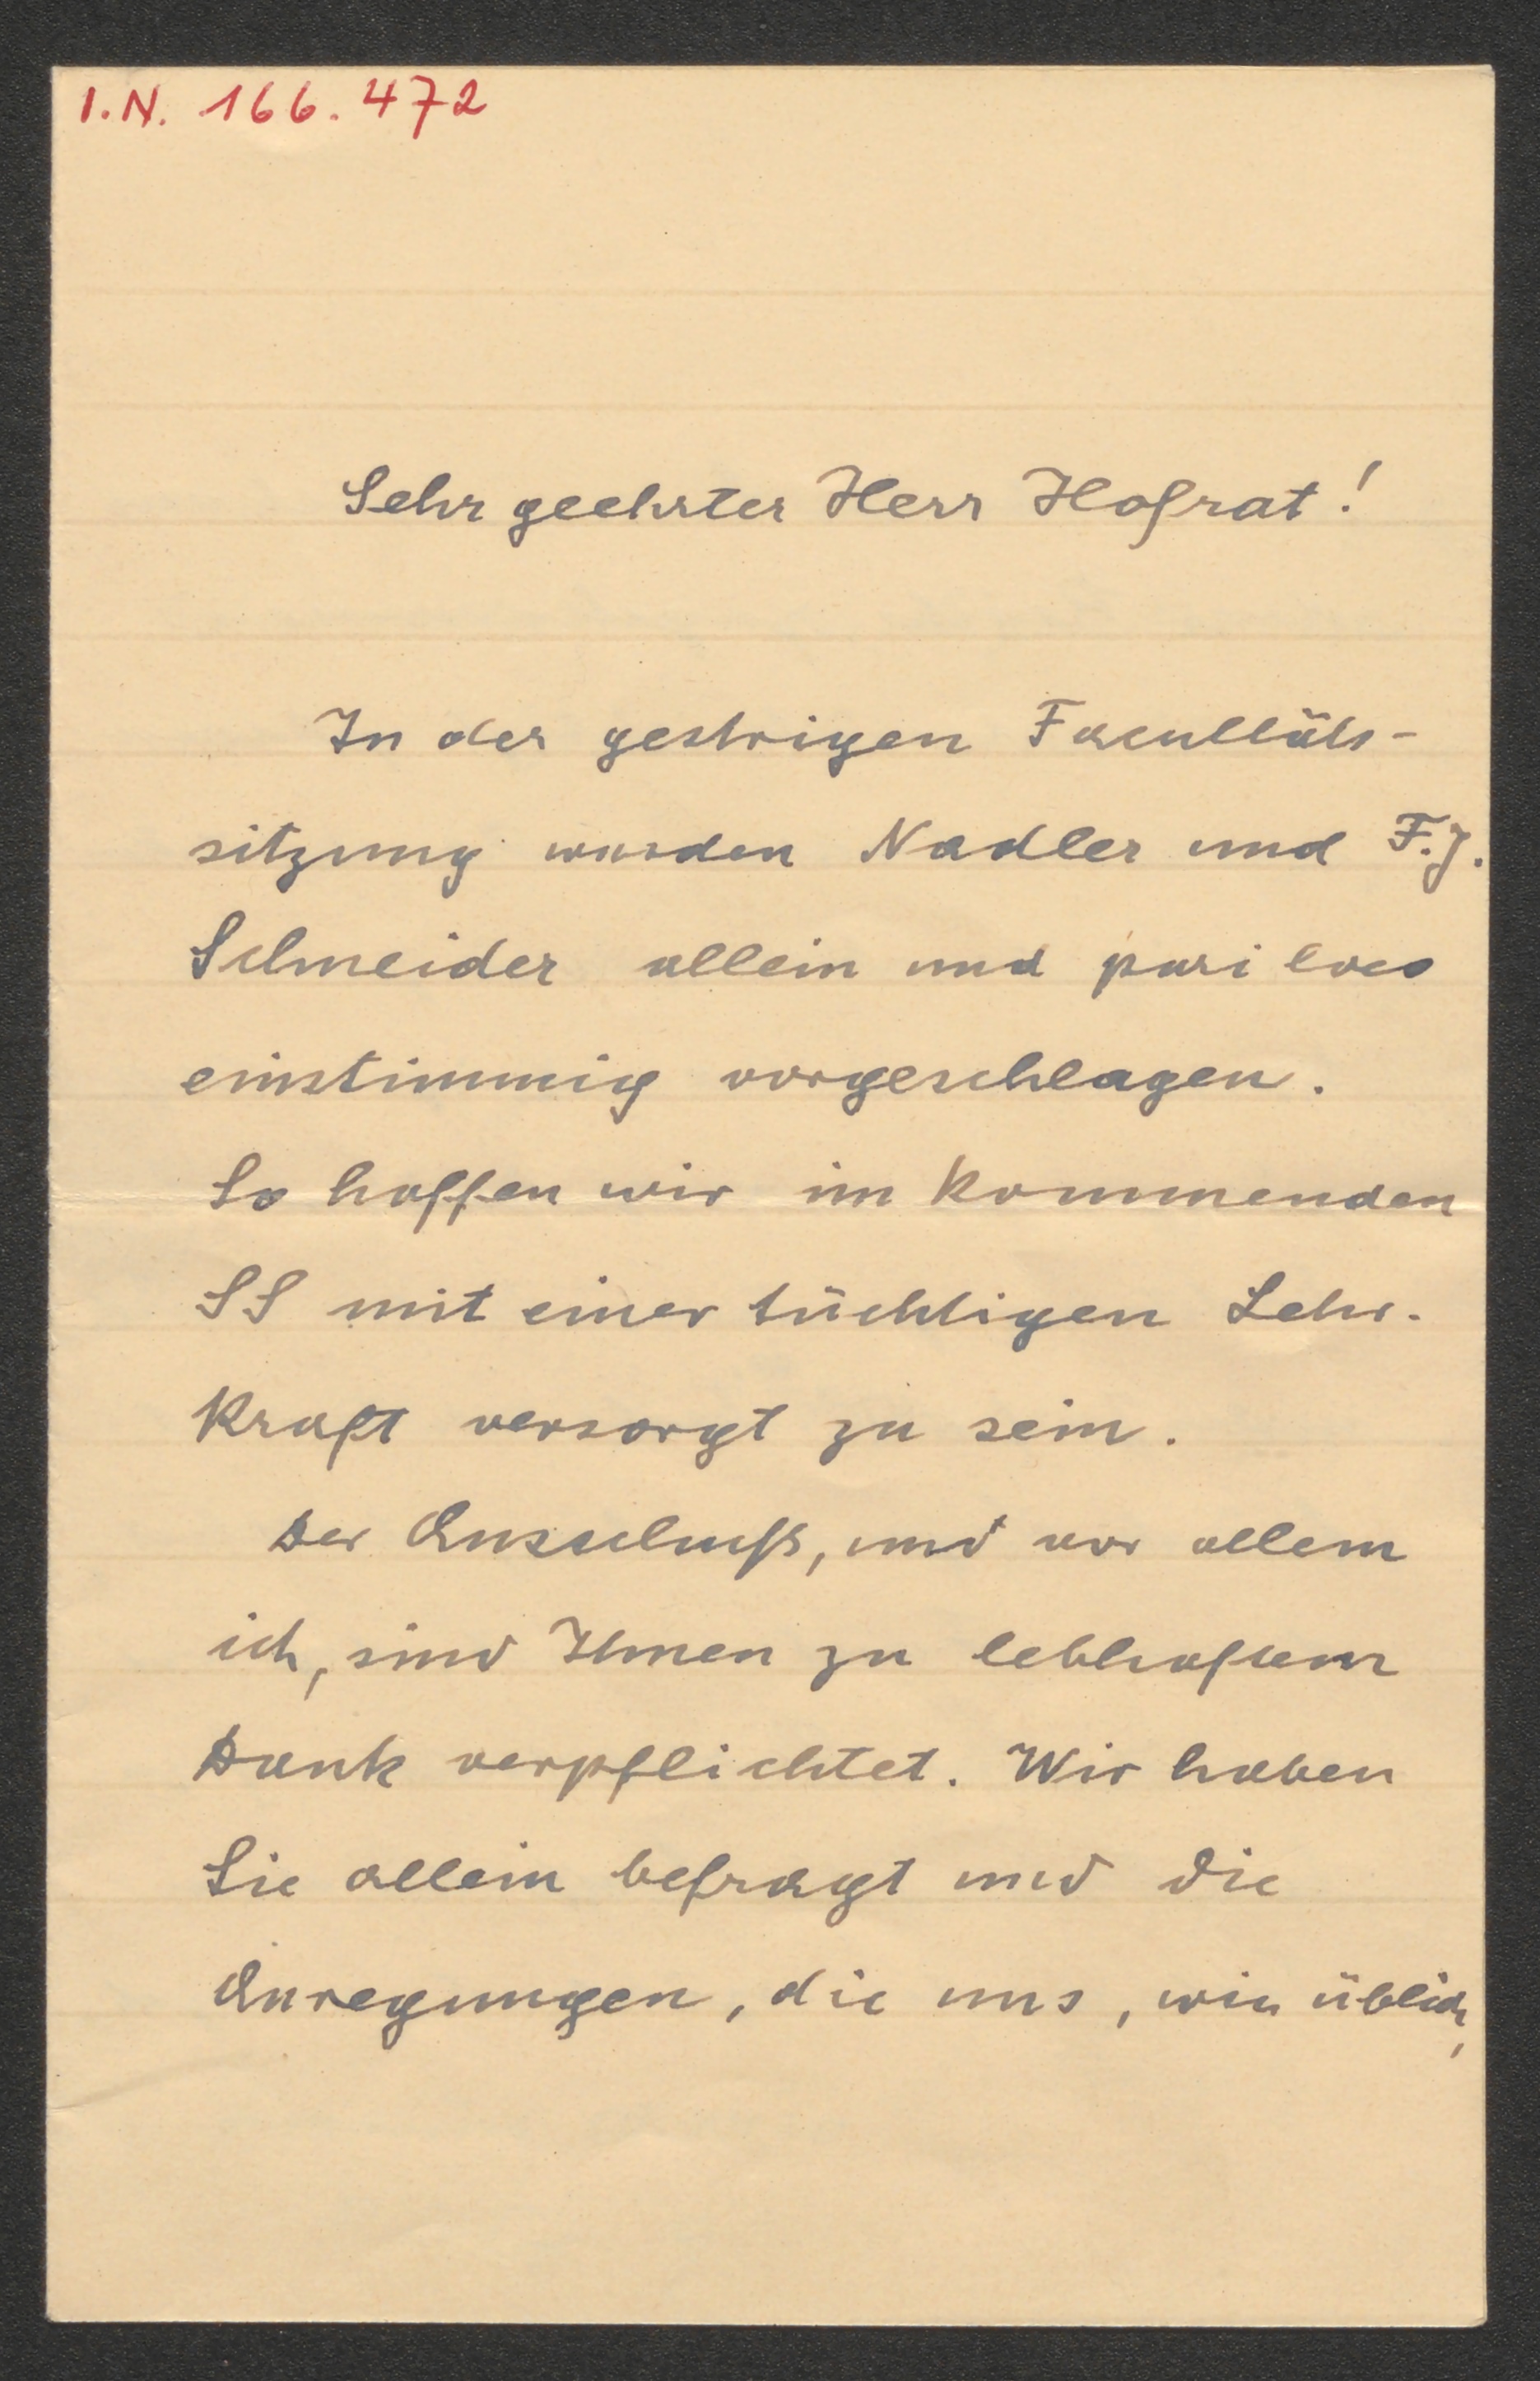 I.N. 166.472
Sehr geehrter Herr Hofrat!
In der gestrigen Facultäts-
sitzung wurden Nadler und F.J.
Schneider allein und pari loco
einstimmig vorgeschlagen.
So hoffen wir im kommenden
SS mit einer tüchtigen Lehr-
kraft versorgt zu sein.
Der Ausschuß, und vor allem
ich, sind Ihnen zu lebhaftem
Dank verpflichtet. Wir haben
Sie allein befragt und die
Anregungen, die uns, wie üblich,